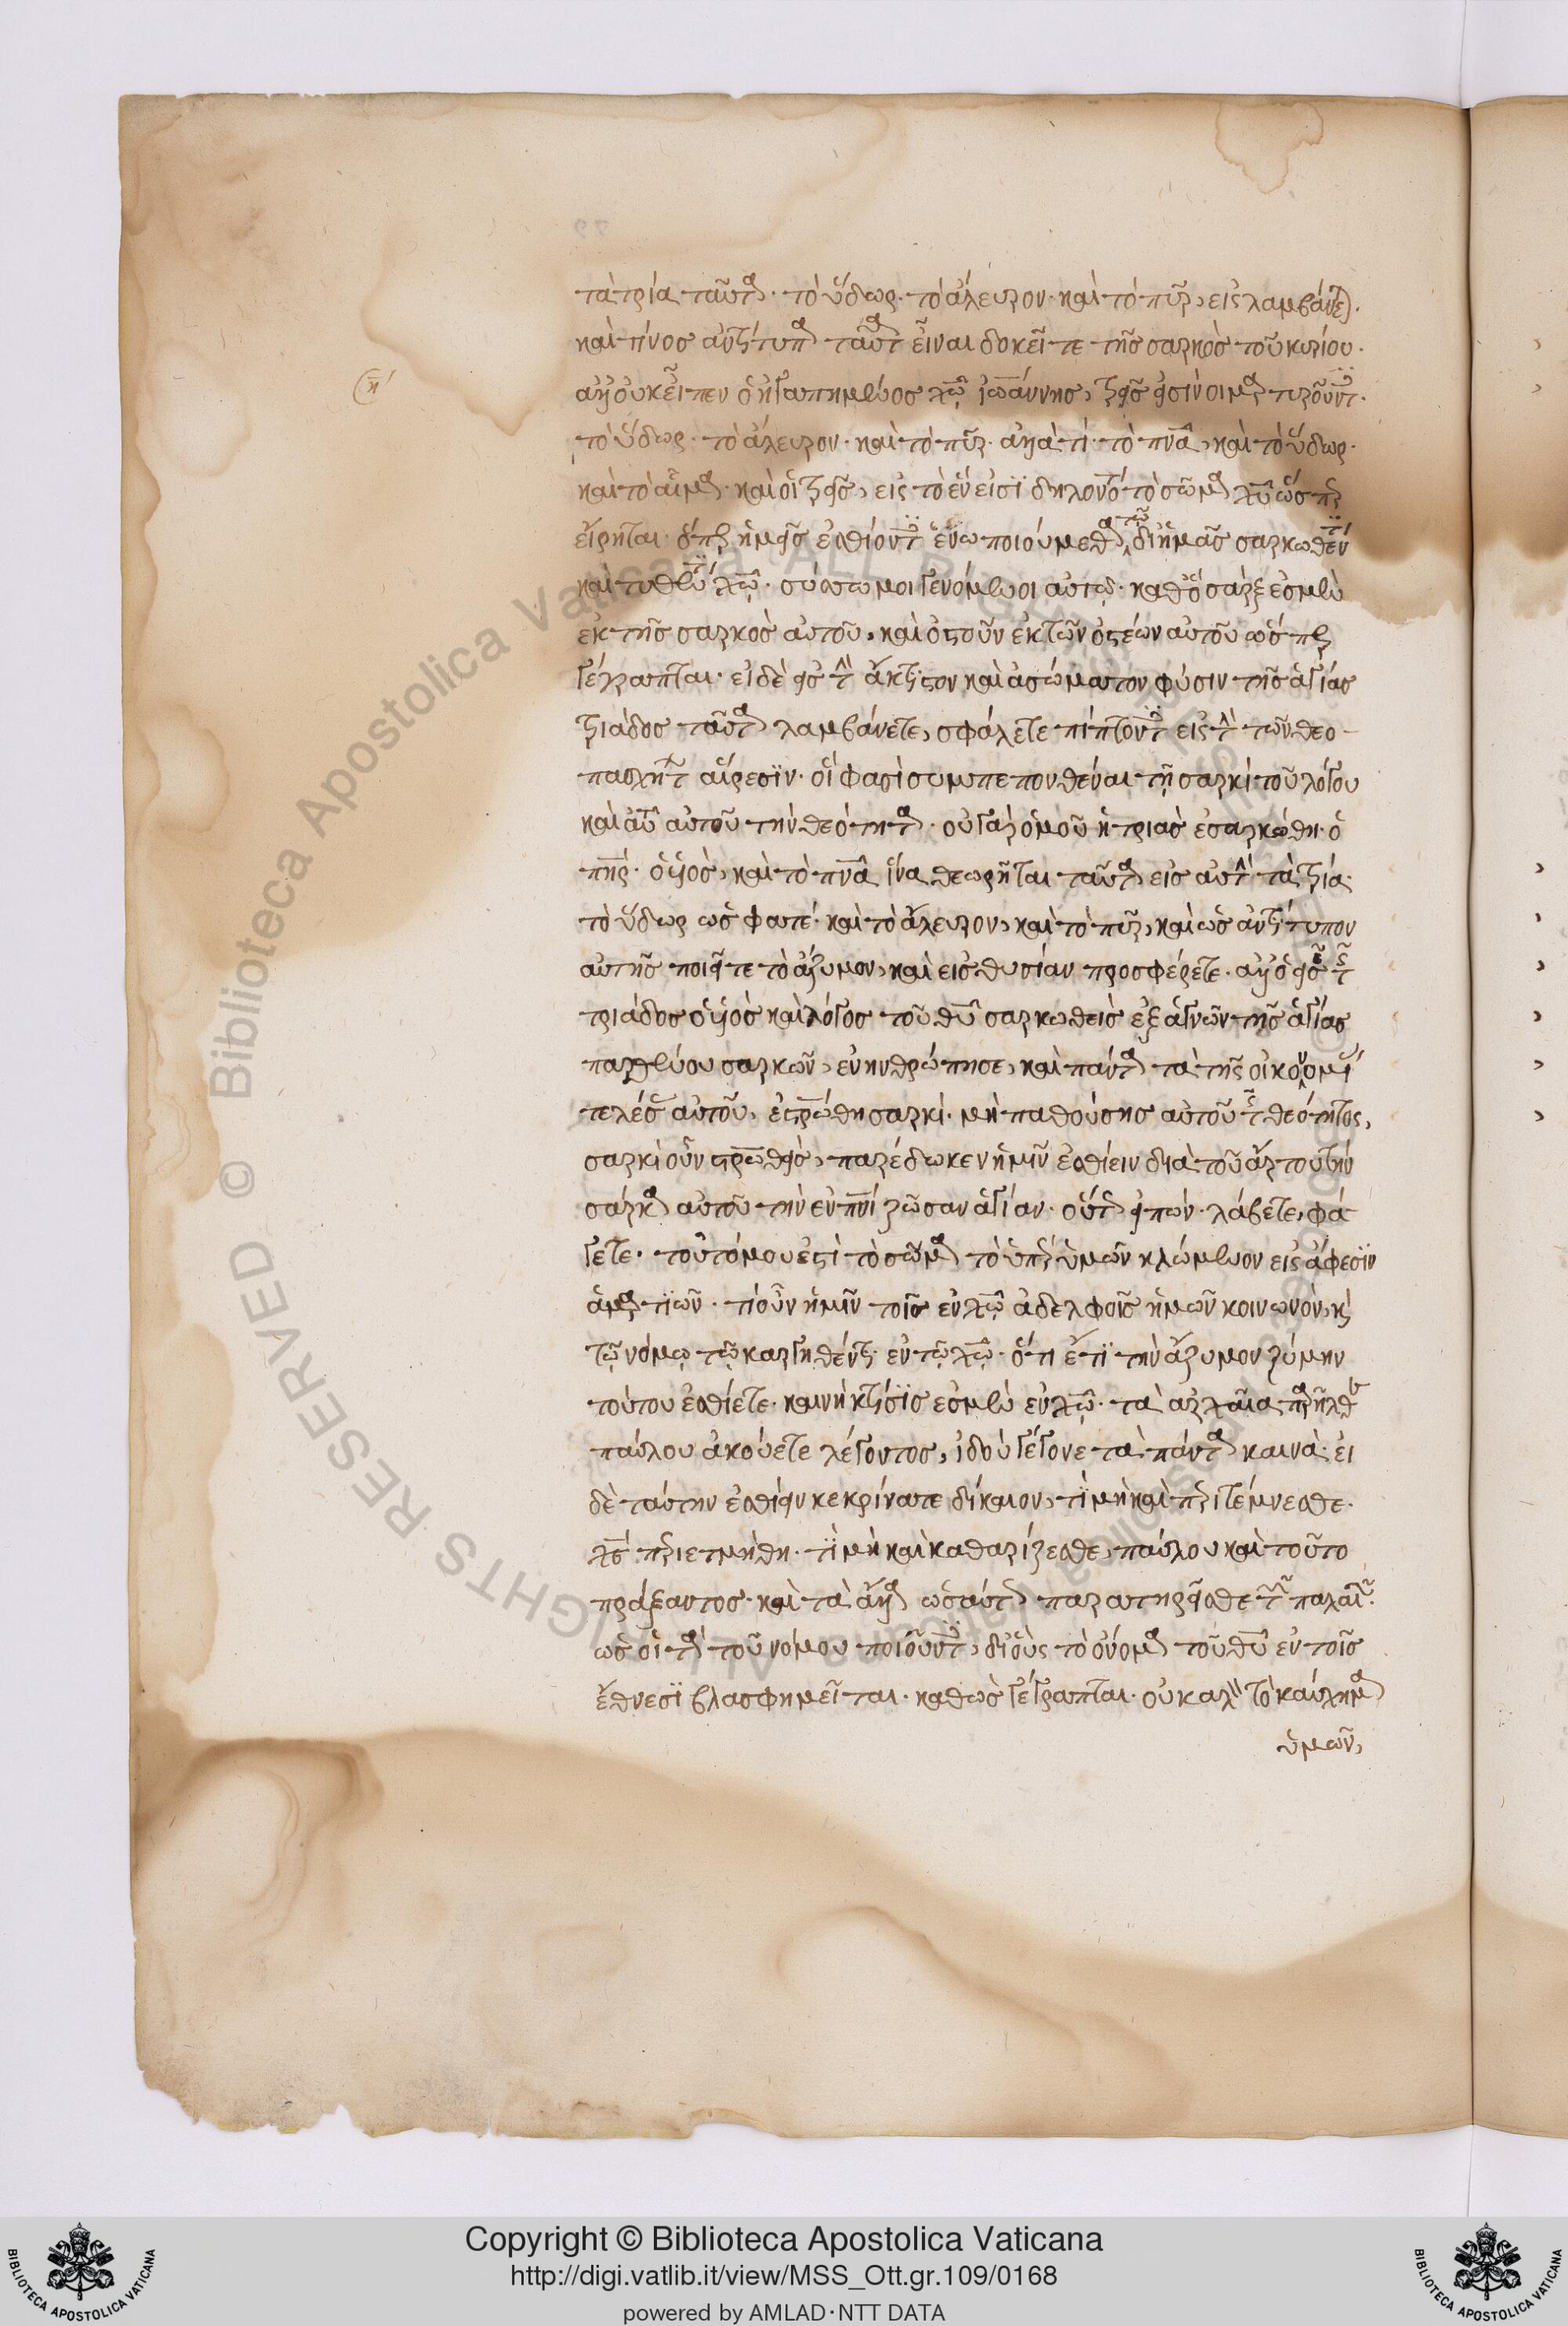 τὰ τρία ταῦτα· τὸ ὕδωρ· τὸ ἄλευρον· καὶ τὸ πῦρ, εἰς λαμβάνετε·
καὶ τίνος ἀντίτυπα ταῦτα εἶναι δοκεῖτε τῆς σαρκὸς τοῦ κυρίου·
ἀλλ' οὐκ εἶπεν ὁ ἠγαπημένος χω ἰωάννης, τρεῖς εἰσὶν οἱ μαρτυροῦντες·
τὸ ὕδωρ· τὸ ἄλευρον· καὶ τὸ πῦρ· ἀλλὰ τί· τὸ πνα, καὶ τὸ ὕδωρ·
καὶ τὸ αἷμα· καὶ οἱ τρεῖς, εἰς τὸ ἕν εἰσὶ δηλονότι τὸ σῶμα χυ ὥσπερ
εἴρηται· ὅπερ ἡμεῖς ἐσθίοντες ἑνωποιούμεθα τῶ δι' ἡμᾶς σαρκωθέντι
καὶ τυθέντι χω· σύσσωμοι γενόμενοι αὐτῷ· καθὸ σάρξ ἐσμὲν
ἐκ τῆς σαρκὸς αὐτοῦ, καὶ ὀστοῦν ἐκ τῶν ὀστέων αὐτοῦ ὥσπερ
γέγραπται· εἰ δὲ εἰς τὴν ἄκτιστον καὶ ἀσώματον φύσιν τῆς ἁγίας
τριάδος ταῦτα λαμβάνετε, σφάλετε πίπτοντες εἰς τὴν τῶν θεο-
πασχητῶν αἵρεσιν· οἵ φασὶ συμπεπονθέναι τῇ σαρκὶ τοῦ λόγου
καὶ αὐτοῦ τὴν θεότητα· οὐ γὰρ ὁμοῦ ἡ τριὰς ἐσαρκώθη· ὁ
πηρ· ὁ υἱὸς, καὶ τὸ πνα ἵνα θεωρῆται ταῦτα εἰς αὐτὴν τὰ τρία·
τὸ ὕδωρ ὡς φατέ· καὶ τὸ ἄλευρον, καὶ τὸ πῦρ, καὶ ὡς ἀντίτυπον
αὐτῆς ποιεῖτε τὸ ἄζυμον, καὶ εἰς θυσίαν προσφέρετε· ἀλλ' ὁ εἷς τῆς
τριάδος ὁ υἱὸς καὶ λόγος τοῦ θυ σαρκωθεὶς ἐξ ἁγνῶν τῆς ἁγίας
παρθένου σαρκῶν, ἐνηνθρώπησε, καὶ πάντα τὰ τῆς οἰκονομί
τελέσας αὐτοῦ, ἐστρώθη σαρκὶ· μὴ παθούσης αὐτοῦ τῆς θεότητος,
σαρκὶ οὖν στρωθεὶς, παρέδωκεν ἡμῖν ἐσθίειν διὰ τοῦ ἄρτου τὴν
σάρκα αὐτοῦ τὴν ἐν πνι ζῶσαν ἁγίαν· οὕτως εἰπών· λάβετε, φά
γετε· τοῦτό μου ἐστὶ τὸ σῶμα τὸ ὑπὲρ ὑμῶν κλώμενον εἰς ἄφεσιν
ἁμαρτιῶν· τί οὖν ἡμῖν τοῖς ἐν χω ἀδελφοῖς ἡμῶν κοινωνόν, καὶ
τῷ νόμῳ τῷ καργηθέντι ἐν τῷ χω· ὅτι ἔτι τὴν ἄζυμον ζύμην
τούτου ἐσθίετε· καινὴ κτίσις ἐσμὲν ἐν χω· τὰ ἀρχαῖα παρῆλθεν
παύλου ἀκούετε λέγοντος, ἰδοὺ γέγονε τὰ πάντα καινά· εἰ
δὲ ταύτην ἐσθίειν κεκρίνατε δίκαιον, τί μὴ καὶ περιτέμνεσθε·
χς περιετμήθη· τί μὴ καὶ καθαρίζεσθε, παύλου καὶ τοῦτο
πράξαντος· καὶ τὰ ἄλλα ὡσαύτως παρατηρεῖσθε τῶν παλαιῶν·
ὡς οἱ τὰ τοῦ νόμου ποιοῦντες, δι' οὓς τὸ ὄνομα τοῦ θυ ἐν τοῖς
ἔθνεσι βλασφημεῖται· καθὼς γέγραπται· οὐ καλὸν τὸ καύχημα
ὑμῶν,
Copyright © Biblioteca Apostolica Vaticana
http://digi.vatlib.it/view/MSS_Ott.gr.109/0168
powered by AMLAD·NTT DATA